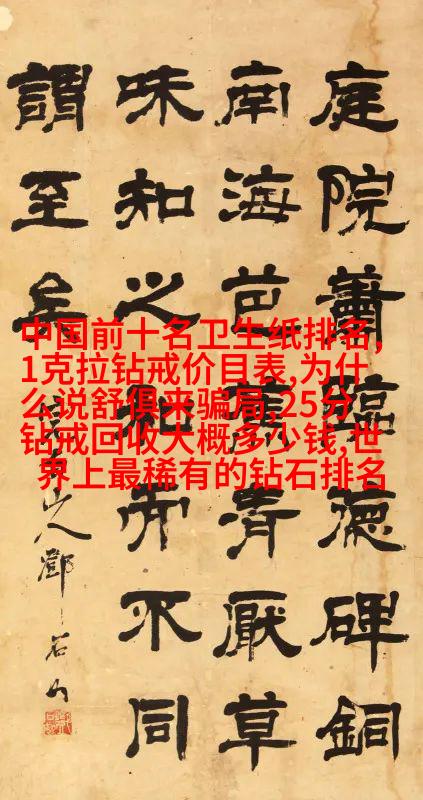 中国前十名卫生纸排名,
1克拉钻戒价目表,为什
么说舒俱来骗局,25分
钻戒回收大概多少钱,世
界上最稀有的钻石排名
庭院蕭臨德碑銅
南海芭蕉清厭草
味知之和亦不同
謂至矣
山人鄧石如